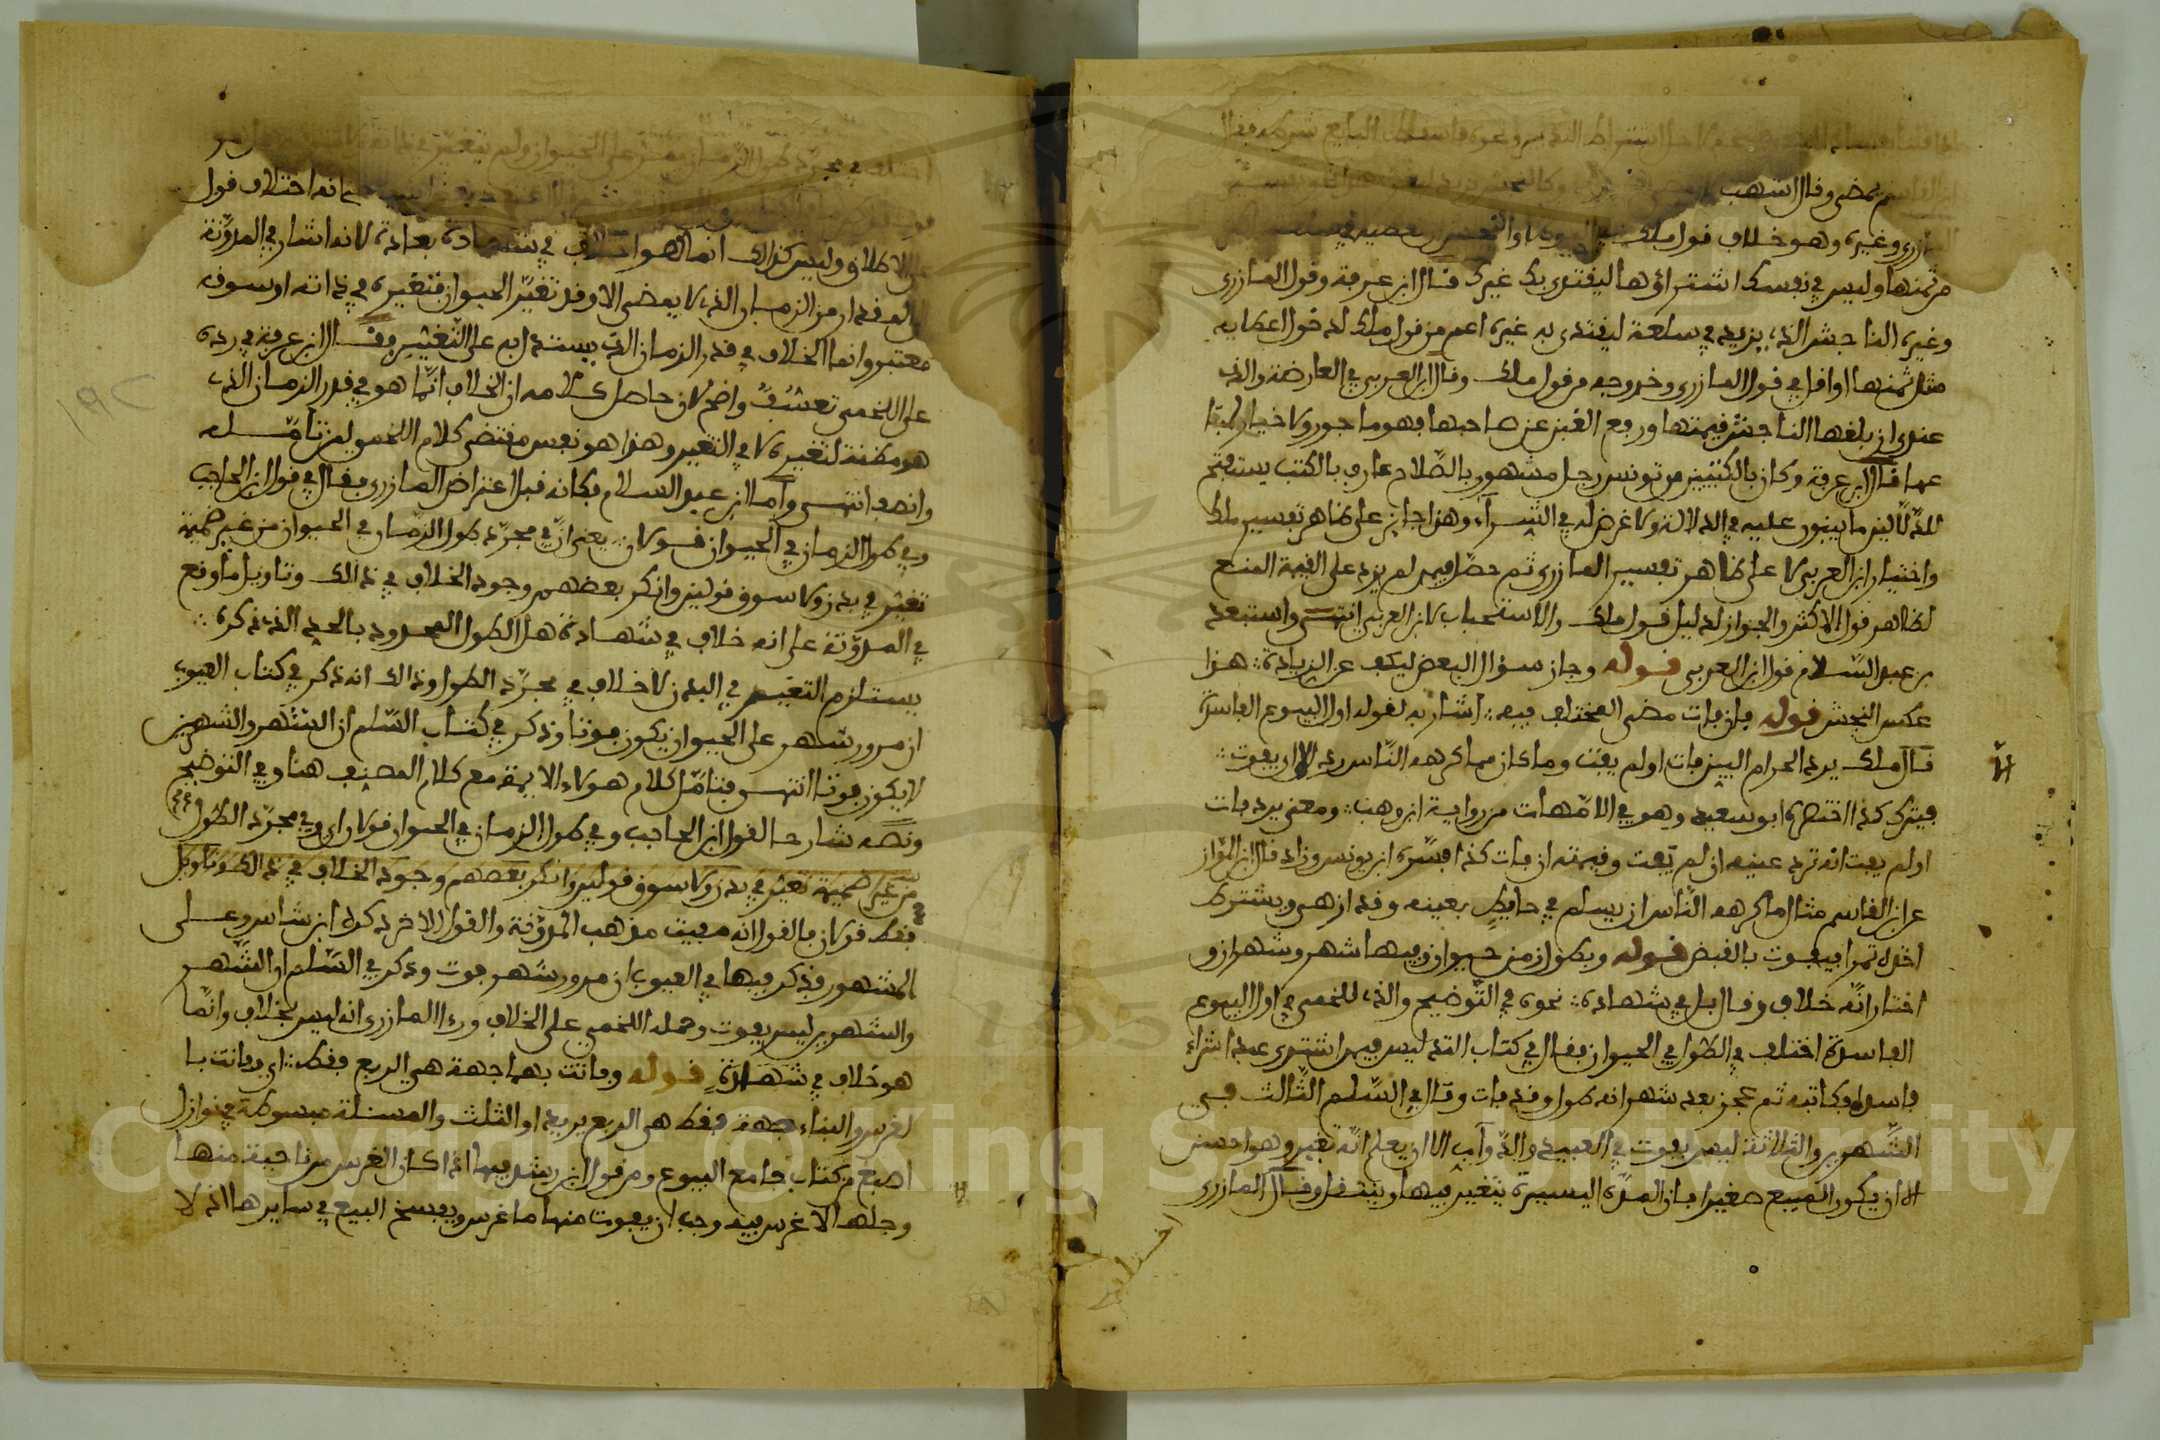 يمضى وقال اشهب
المازري وغيره وهو خلاف قول ملك
من ثمنها وليس في نفسك اشتراؤها ليقتدي بك غيرك قال ابن عرفة وقول المازري
وغيره الناجش الذي يزيد في سلعة ليقتدي به غيره اعم من قول ملك لدخول اعطائه
مثل ثمنها او اقل في قول المازري وخروجه من قول ملك وقال ابن العربي في العارضة والذي
عندي ان بلغها الناجش قيمتها ورفع الغبن عن صاحبها فهو ماجور ولا خيار لمبتا
عها قال ابن عرفة وكان بالكتبيين من تونس رجل مشهور بالصلاح عارف بالكتب يستفتح
للدلالين ما يبنون عليه في الدلالة ولا غرض له في الشراء وهذا جايز على ظاهر تفسير ملك
واختيار ابن العربي لا على ظاهر تفسير المازري ثم حصل فيمن لم يزد على القيمة المنع
لظاهر قول الاكثر والجواز لدليل قول ملك والاستحباب لابن العربي انتهى واستبعد
بن عبد السلام قول ابن العربي قوله وجاز سؤال البعض ليكف عن الزيادة هذا
عكس النجش قوله فان فات مضى المختلف فيه اشار به لقوله اول البيوع الفاسدة
قال ملك يرد الحرام البين فات او لم يفت وما كان مما كرهه الناس رد الا ان يفوت
فيترك كذا اختصره ابو سعيد وهو في الامهات من رواية ابن وهب ومعنى يرد فات
او لم يفت انه ترد عينه ان لم تفت وقيمته ان فات كذا فسره ابن يونس وزاد قال ابن المواز
عن ابن القاسم مثال ما كرهه الناس ان يسلم في حايط بعينه وقد ازهى ويشترط
اخذه تمرا فيفوت بالقبض قوله وبطول زمن حيوان وفيها شهر وشهران و
اختار انه خلاف وقال بل في شهادة نحوه في التوضيح والذي للخمي في اول البيوع
الفاسدة اختلف في الطول في الحيوان فقال في كتاب التدليس فيمن اشترى عبدا شراء
فاسدا وكاتبه ثم عجز بعد شهر انه طول وقد فات وقال في السلم الثالث في
الشهرين والثلاثة ليس يفوت في العبيد والدواب الا ان يعلم انه تغير وهو احسن
الا ان يكون المبيع صغيرا فان المدة اليسيرة يتغير فيها وينتقل وقال المازري
اختلف في مجرد طول الزمان يمر على الحيوان ولم يتغير في ذاته
انه اختلاف قول
على الاطلاق وليس كذالك انما هو اختلاف في شهادة بعادة لانه اشار في المدونة
الى المقدار من الزمان الذي لا يمضي الا وقد تغير الحيوان فتغيره في ذاته او سوقه
معتبر وانما الخلاف في قدر الزمان الذي يستدل به على التغيير وقال ابن عرفة في رده
على اللخمي تعسف واضح لان حاصل كلامه ان الخلاف انما هو في قدر الزمان الذي
هو مظنة لتغيره لا في التغير وهذا هو نفس مقتضى كلام اللخمي لمن تامله
وانصف انتهى واما ابن عبد السلام فكانه قبل اعتراض المازري فقال في قول ابن الحاجب
وفي طول الزمان في الحيوان قولان يعني ان في مجرد طول الزمان في الحيوان من غير ضميمة
تغير في بدن ولا سوق قولين وانكر بعضهم وجود الخلاف في ذالك وتاويل ما وقع
في المدونة على انه خلاف في شهادة هل الطول المحدود بالحد الذي ذكره
يستلزم التغيير في البدن لا خلاف في مجرد الطول وذالك انه ذكر في كتاب العيوب
ان مرور شهر على الحيوان يكون فوتا وذكر في كتاب السلم ان الشهر والشهرين
لا يكون فوتا انتهى فتامل كلام هولاء الايمة مع كلام المصنف هنا وفي التوضيح
ونصه شارحا لقول ابن الحاجب وفي طول الزمان في الحيوان قولان اي وفي مجرد الطول
من غير ضميمة تغير في بدن ولا سوق قولين وانكر بعضهم وجود الخلاف في ذالك وتاويل
فقط قولان فالقول انه مفيت مذهب المدونة والقول الاخر ذكره ابن شاس وعلى
المشهور فذكر فيها في العيوب ان مرور شهر فوت وذكر في السلم ان الشهر
والشهرين ليس يفوت وحمله اللخمي على الخلاف ورءا المازري انه ليس بخلاف وانما
هو خلاف في شهادة قوله وفاتت بهما جهة هي الربع فقط اي وفاتت با
لغرس والبناء جهة فقط هي الربع يريد او الثلث والمسئلة مبسوطة في نوازل
اصبغ من كتاب جامع البيوع ومن قول ابن رشد فيها اذا كان الغرس من ناحية منها
وجلها لا غرس فيه وجب ان يفوت منها ما غرس ويفسخ البيع في سايرها اذ لا
١٩٢